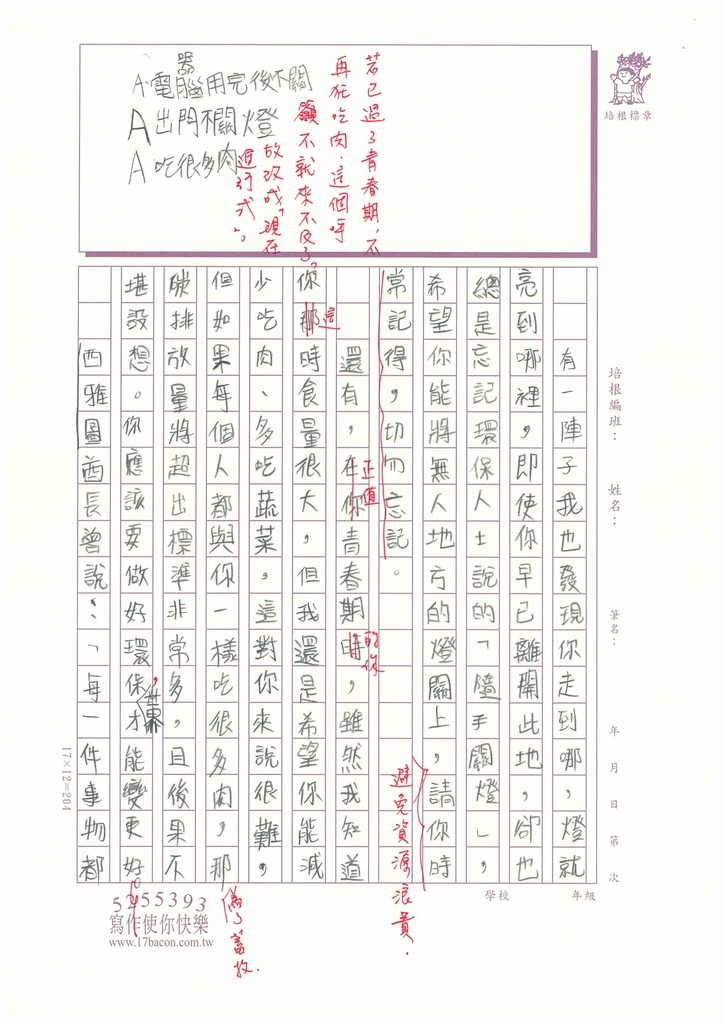 A、電腦用完後不關
器
A 出門不關燈
A 吃很多肉
若已過了青春期，不
再死吃肉．這個呼
籲不就來不及了？
故改成「現在
進行式」。
培根標章
培根編班：
姓名：
筆名：
年 月 日 第 次
有一陣子我也發現你走到哪，燈就
亮到哪裡，即使你早已離開此地，卻也
總是忘記環保人士說的「隨手關燈」，
希望你能將無人地方的燈關上，請你時
避免資源浪費．
常記得，切勿忘記。
還有，在你青春期時，雖然我知道
正值
的你
你那時食量很大，但我還是希望你能減
這
少吃肉、多吃蔬菜，這對你來說很難，
但如果每個人都與你一樣吃很多肉，那
為了蓄牧．
碳排放量將超出標準非常多，且後果不
堪設想。你應該要做好環保，才能變更好。
世界
西雅圖酋長曾說：「每一件事物都
17×12=204
5255393
寫作使你快樂
www.17bacon.com.tw
學校
年級